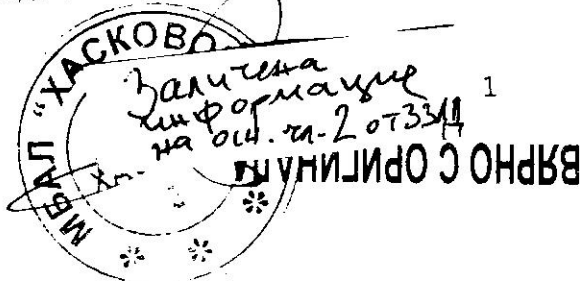 МБАЛ "ХАСКОВО
Заличена
информация
на осн. чл. 2 от ЗЗЛД
1
ВЯРНО С ОРИГИНАЛА